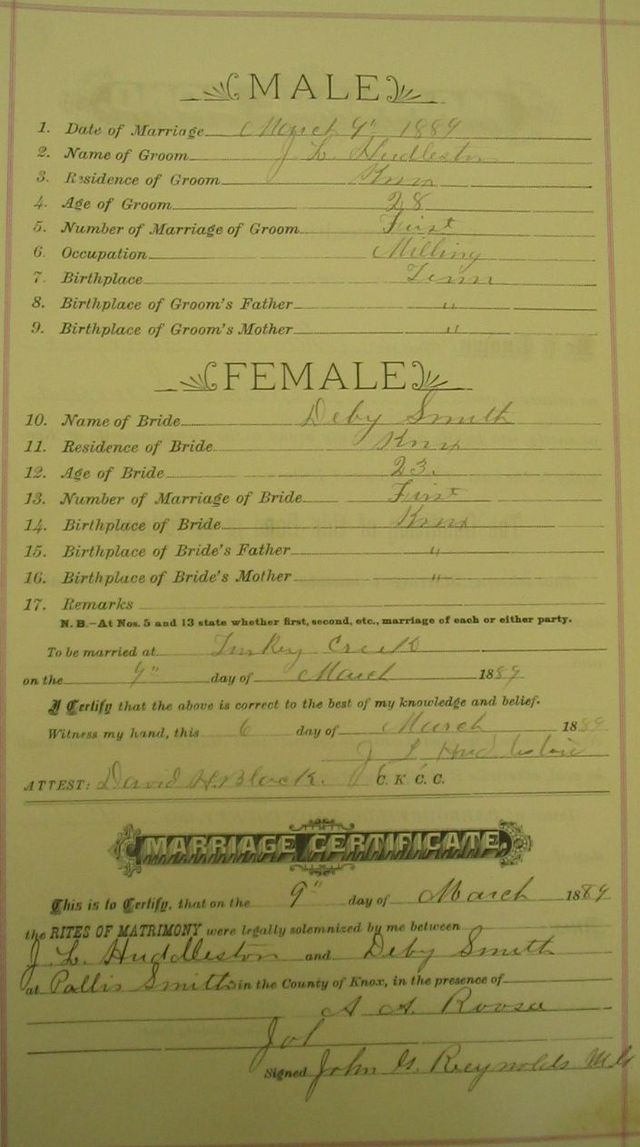 MALE
1. Date of Marriage March 9" 1889
2. Name of Groom J L Hudleston
3. Residence of Groom Knox
4. Age of Groom 28
5. Number of Marriage of Groom First
6. Occupation Milling
7. Birthplace Tenn
8. Birthplace of Groom's Father "
9. Birthplace of Groom's Mother "
FEMALE
10. Name of Bride Deby Smith
11. Residence of Bride Knox
12. Age of Bride 23.
13. Number of Marriage of Bride First
14. Birthplace of Bride Knox
15. Birthplace of Bride's Father "
16. Birthplace of Bride's Mother "
17. Remarks
N. B.—At Nos. 5 and 13 state whether first, second, etc., marriage of each or either party.
To be married at Turkey Creek
on the 9" day of March 1889
I Certify that the above is correct to the best of my knowledge and belief.
Witness my hand, this 6 day of March 1889
J L Hudleston
ATTEST: David H. Black. C. K. C. C.
MARRIAGE CERTIFICATE.
This is to Certify, that on the 9" day of March 1889
the RITES OF MATRIMONY were legally solemnized by me between
J. L. Huddleston and Deby Smith
at Smiths in the County of Knox, in the presence of
A A
Signed John G. Reynolds